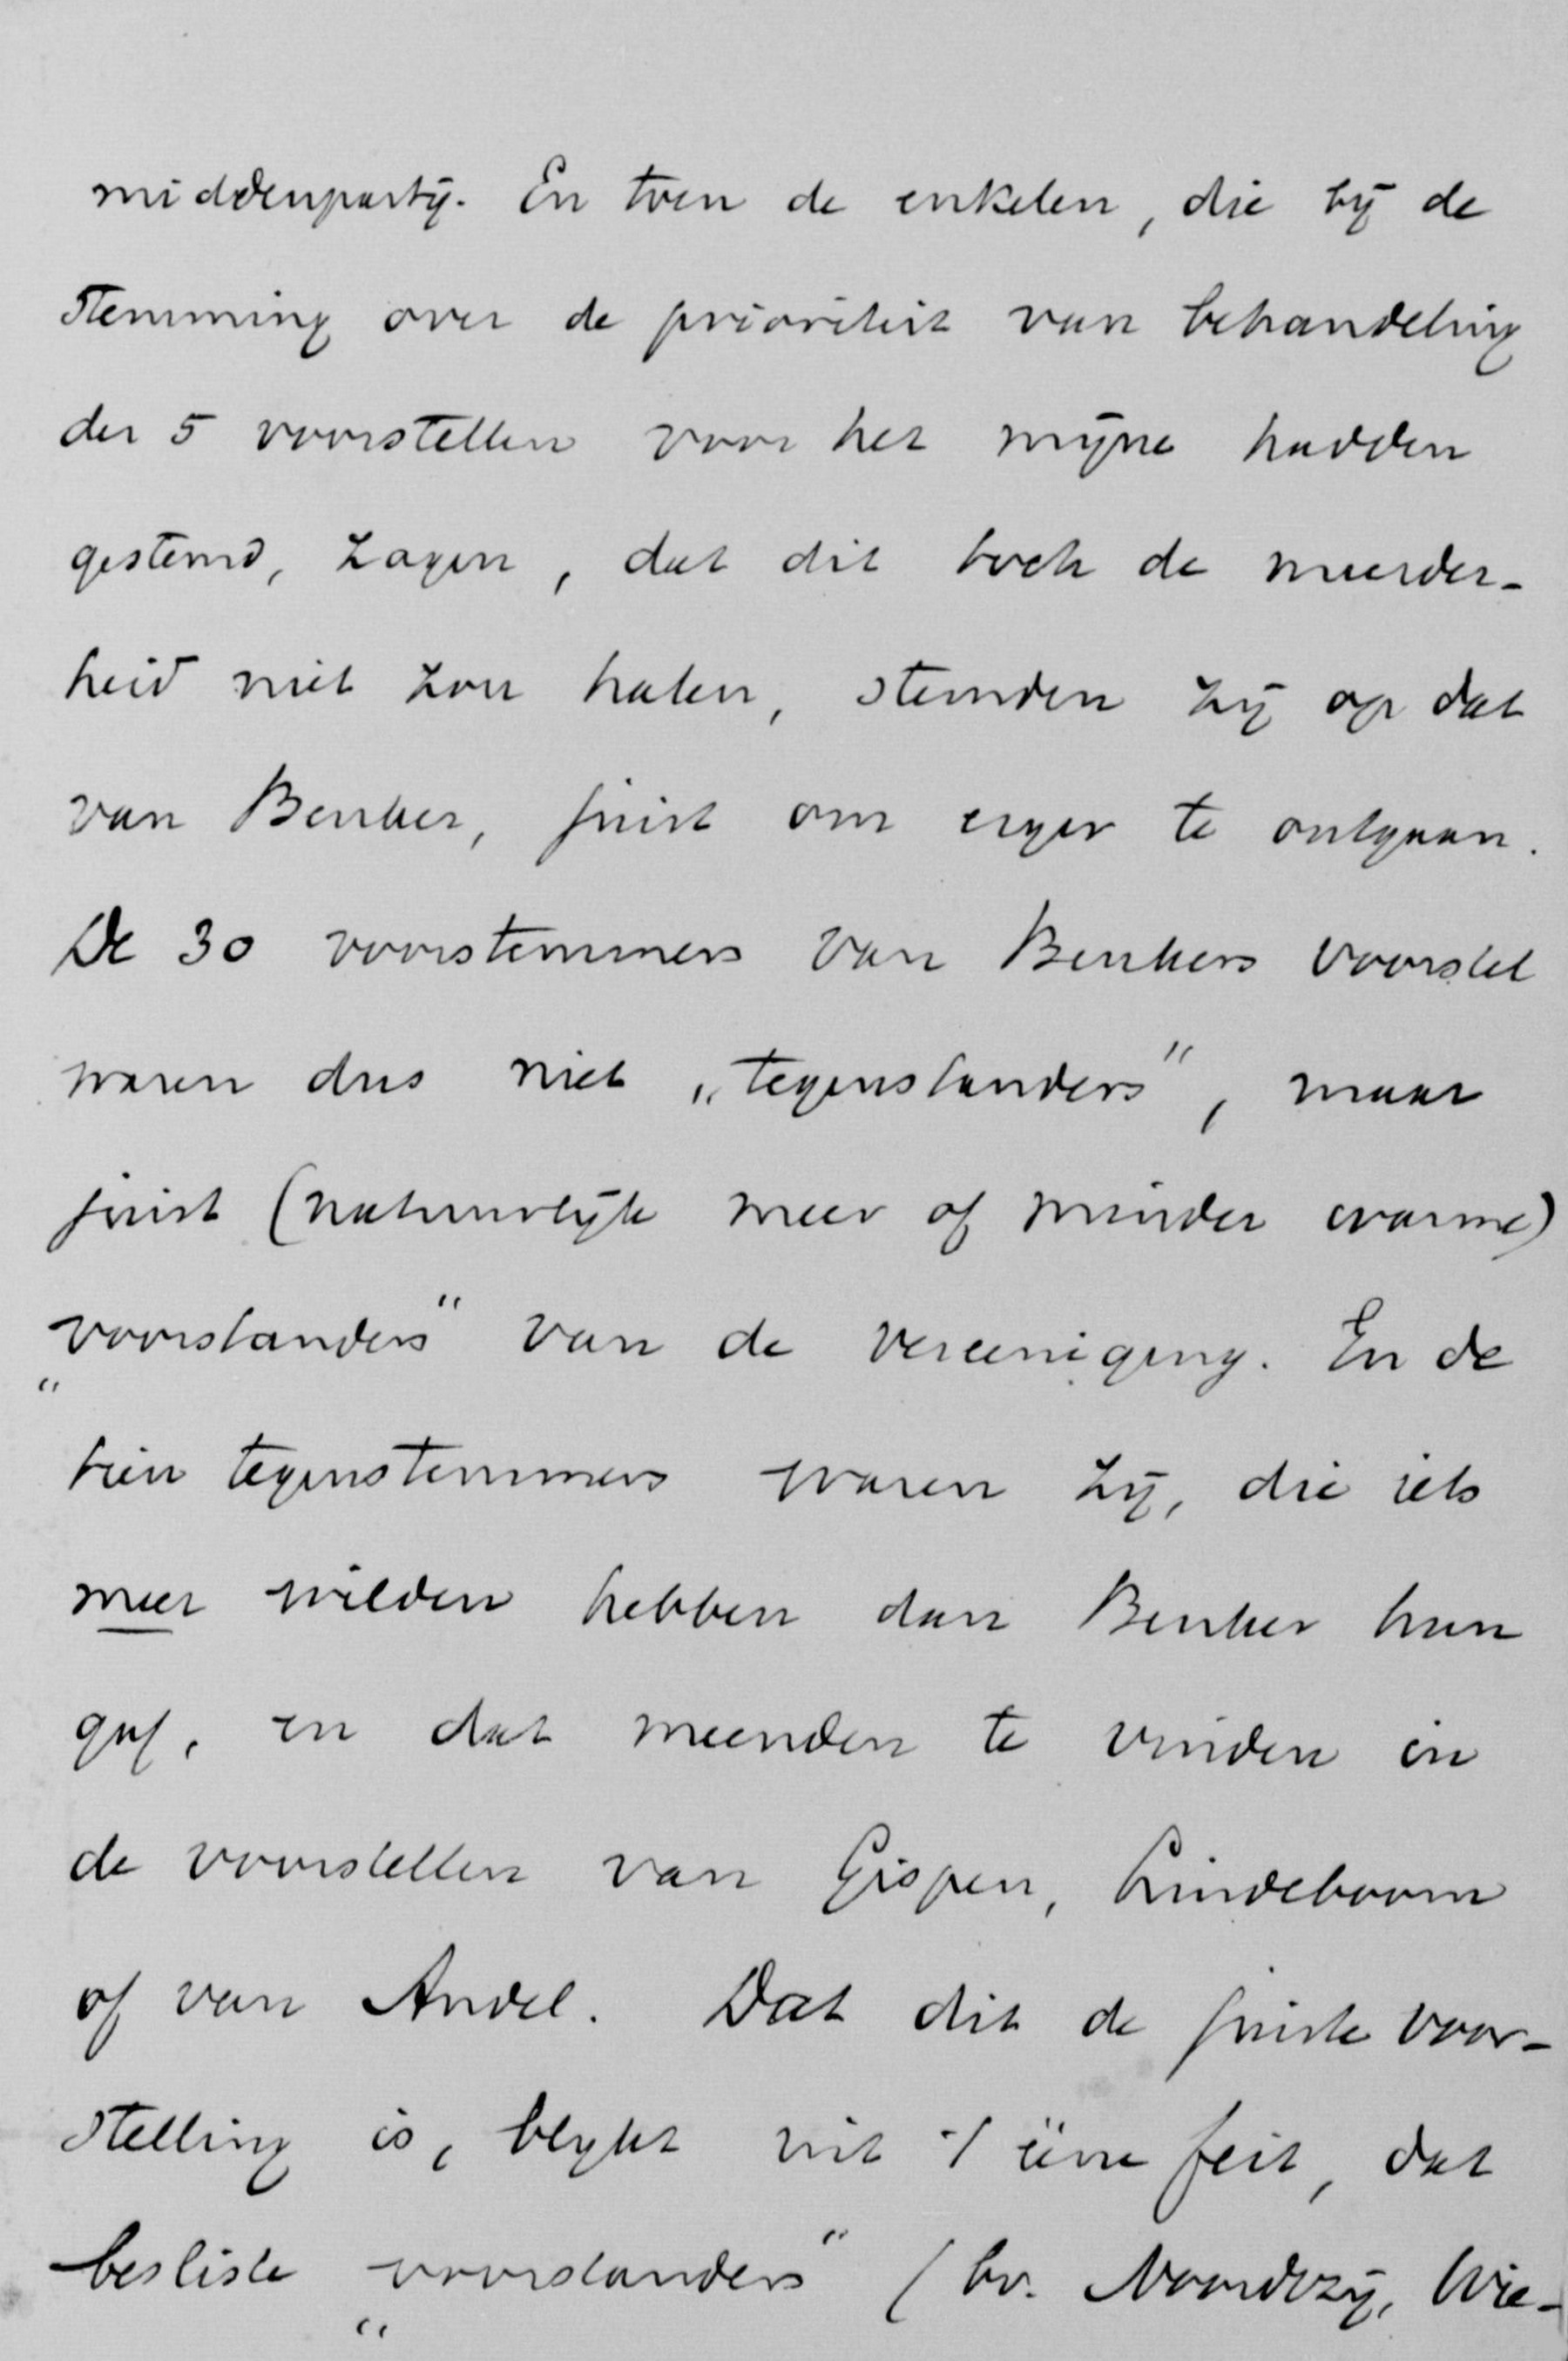 middenpartij. En toen de enkelen, die bij de
stemming over de prioriteit van behandeling
der 5 voorstellen voor het mijne hadden
gestemd, zagen, dat dit toch de meerder-
heid niet zou halen, stemden zij op dat
van Beuker, juist om erger te ontgaan.
De 30 voorstemmers van Beukers voorstel
waren dus niet „tegenstanders”, maar
juist (natuurlijk meer of minder warme)
„voorstanders” van de vereeniging. En de
tien tegenstemmers waren zij, die iets
meer wilden hebben dan Beuker hun
gaf, en dat meenden te vinden in
de voorstellen van Gispen, Lindeboom
of van Andel. Dat dit de juiste voor-
stelling is, blijkt uit 't ééne feit, dat
besliste „voorstanders” (bv. Noordtzij, Wie-